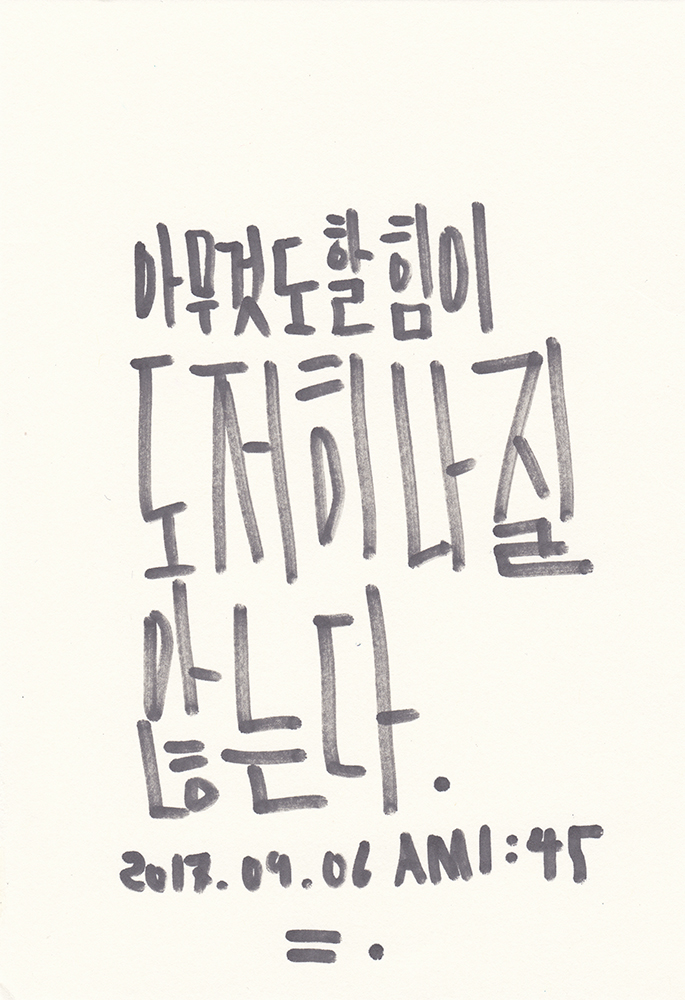 아무것도 할 힘이
도저히 나질
않는다.
2017.09.06 AM1:45
=.